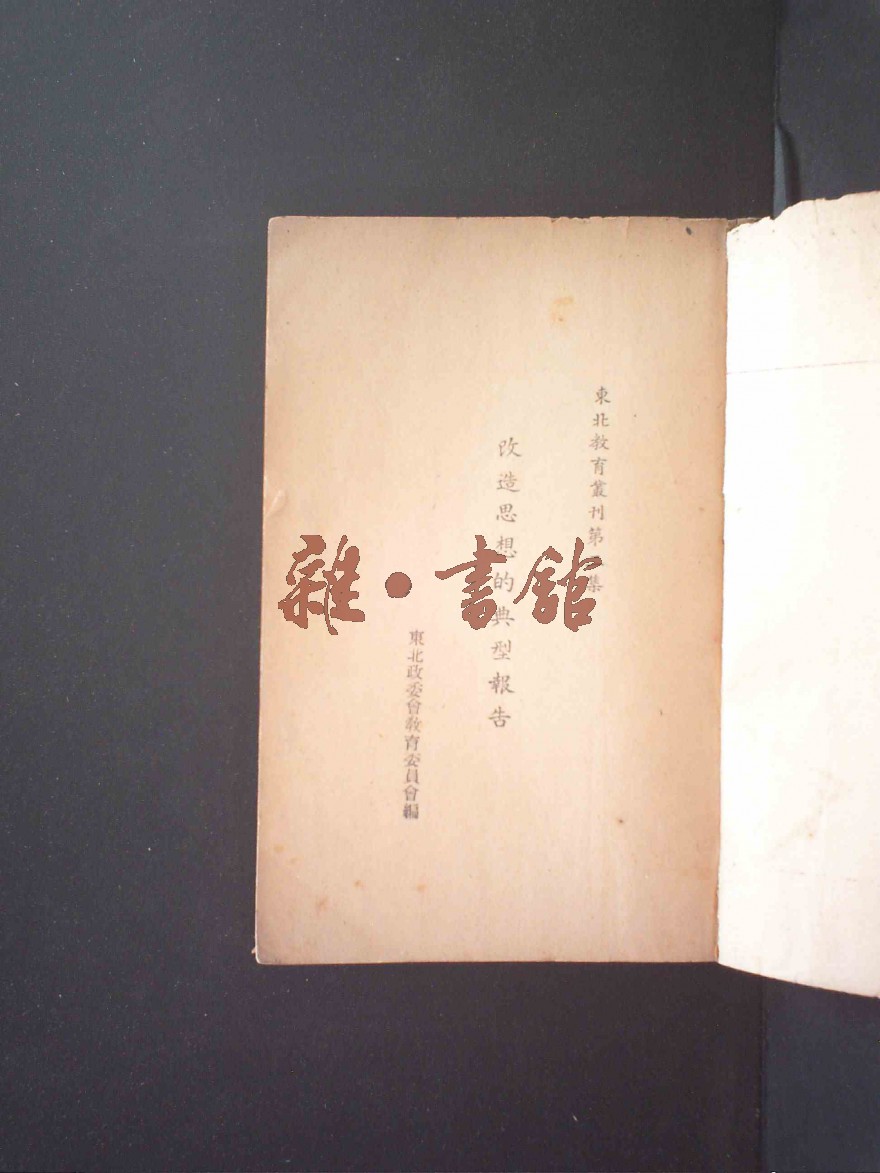 東北教育叢刊第集
改造思想的典型報告
東北政委會教育委員會編
雜·書館